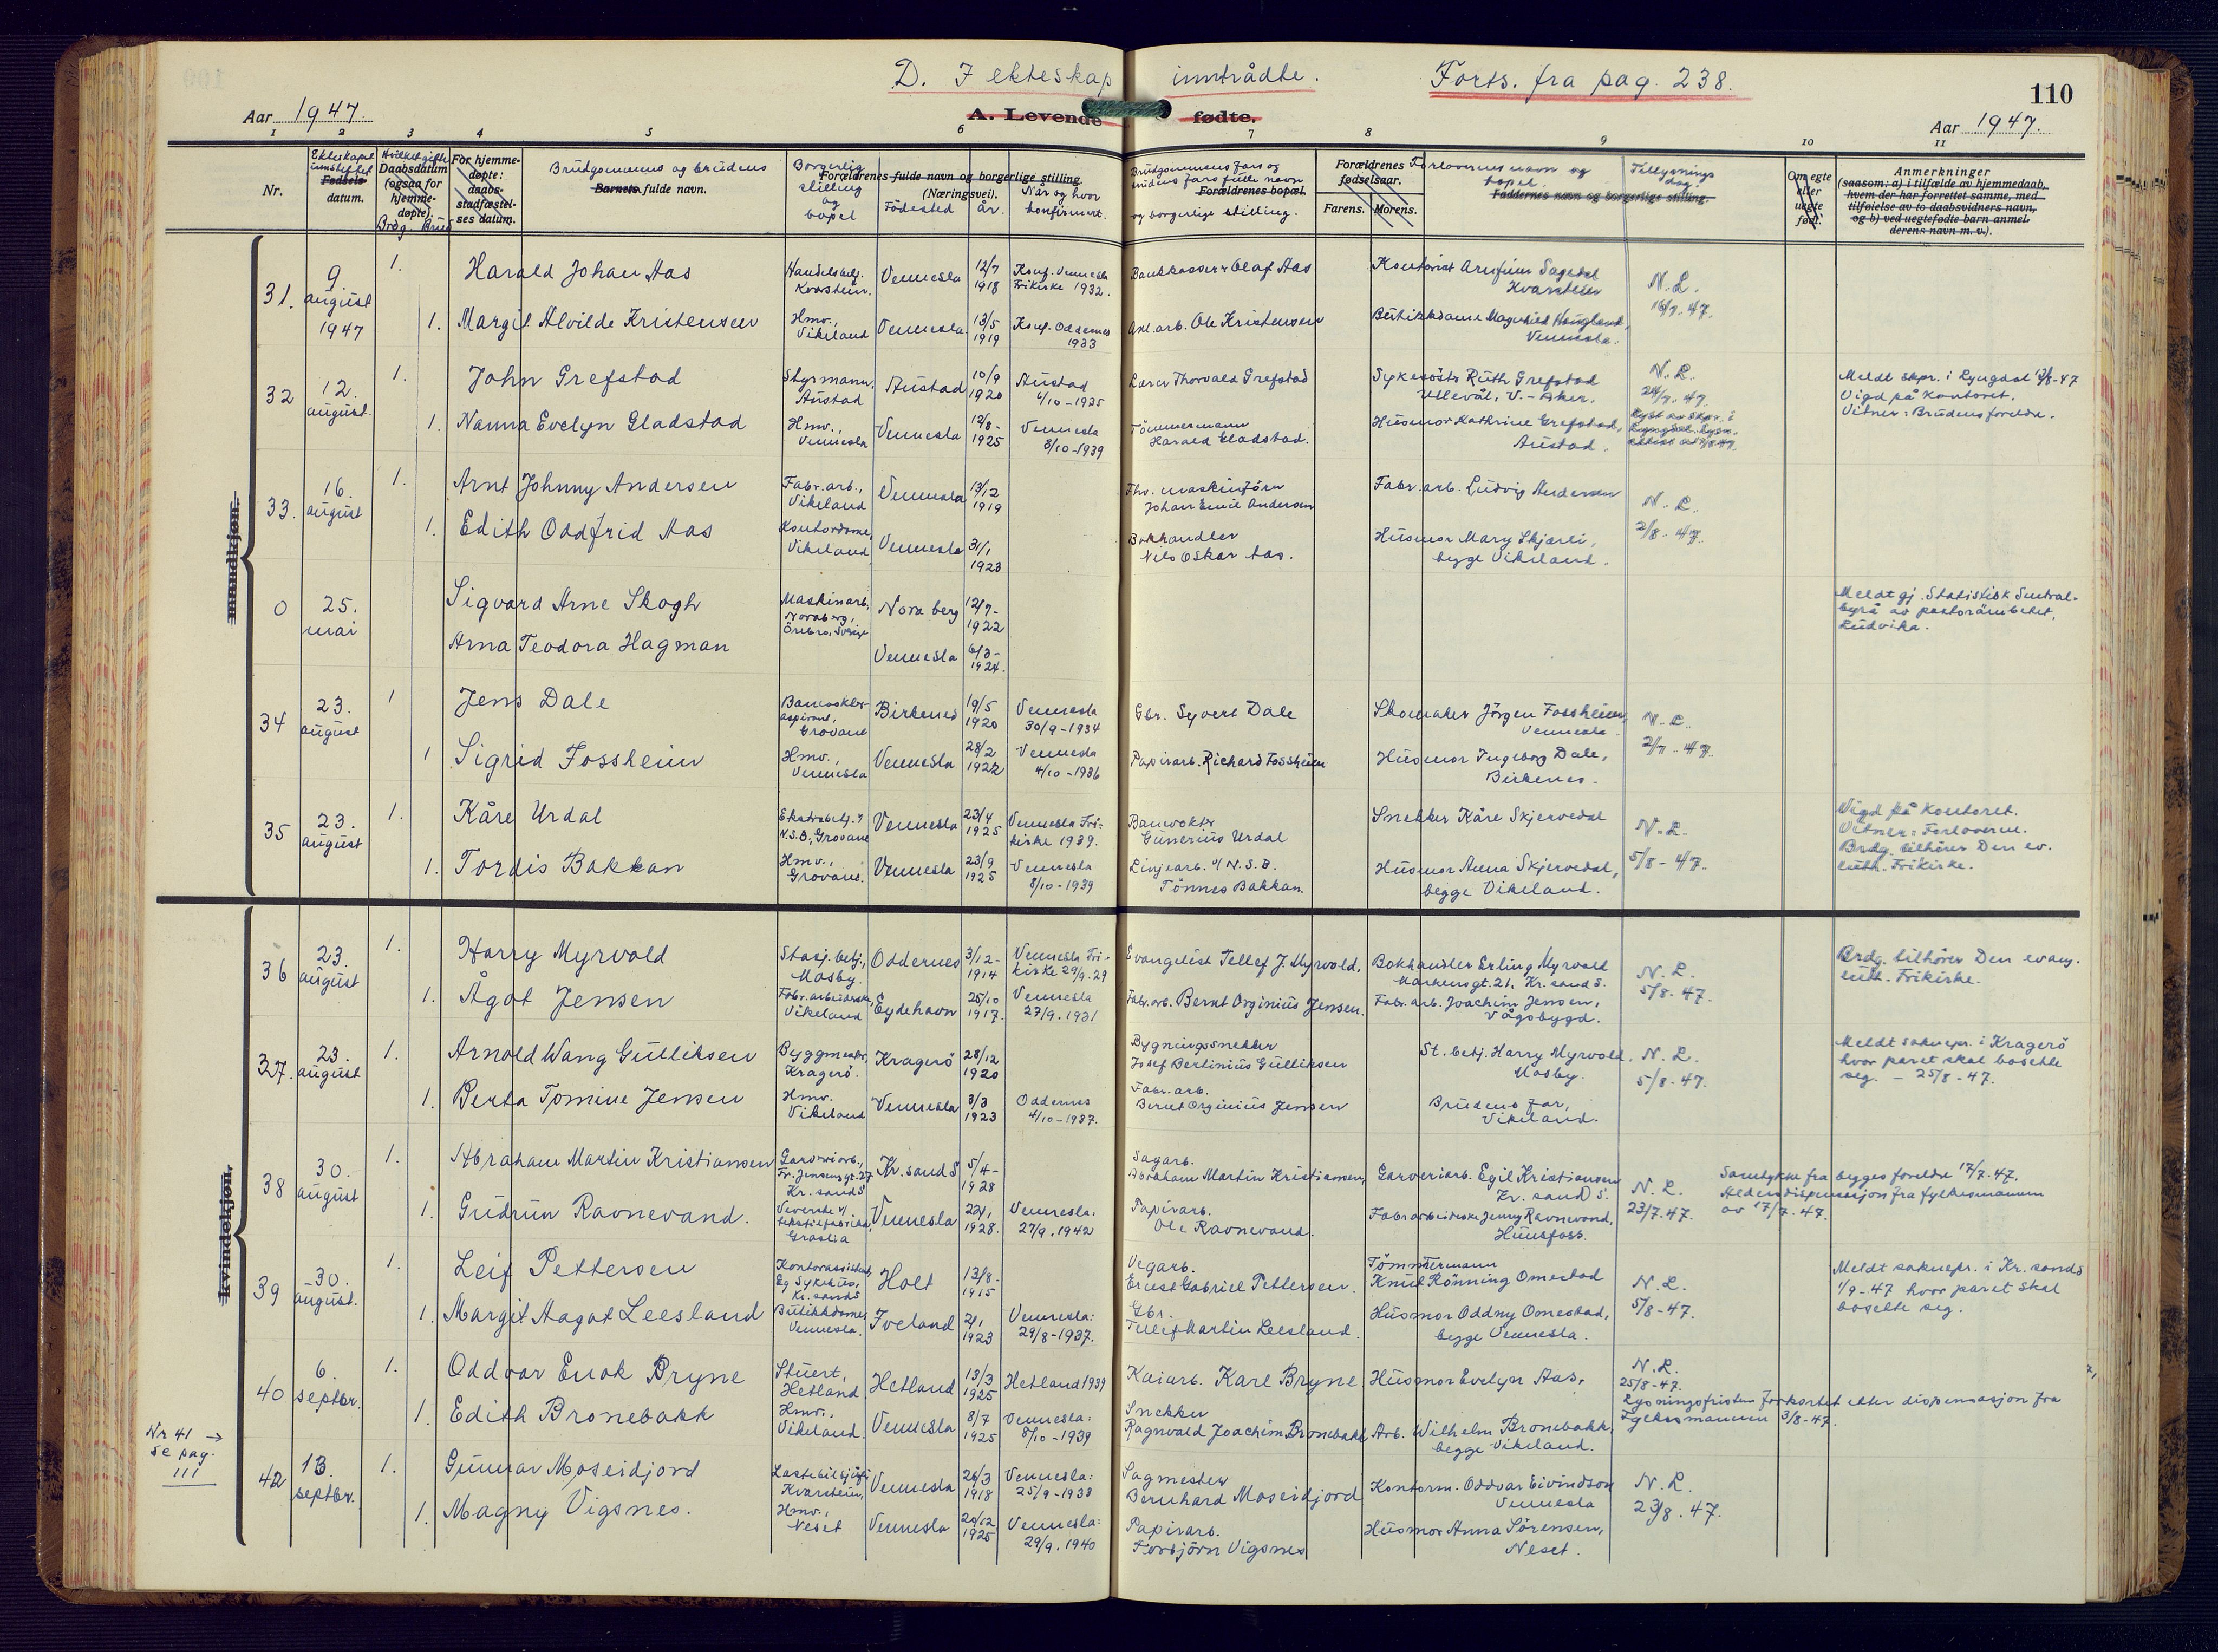 D. I ekteskap inntrådte. Forts. fra pag. 238.
110
Aar 1947.
A. Levende fødte.
Aar 1947.
1 2 3 4 5 6 7 8 9 10 11
Nr.
Ekteskapet innstiftet
Fødsels-
datum.
Hvilket gifte
Daabsdatum
(ogsaa for
hjemme-
døpte).
Brdg. Brud
For hjemme-
døpte:
daabs-
stadfæstel-
ses datum.
Brudgommens og brudens
Barnets fulde navn.
Borgerlig stilling og bopel
Forældrenes fulde navn og borgerlige stilling.
(Næringsvei).
Födested
år.
Når og hvor konfirmert.
Brudgommens fars og
brudens fars fulle navn
Forældrenes bopæl.
og borgerlige stilling.
Forældrenes
fødselsaar.
Farens. Morens.
Forlovernes navn og
bopel.
Faddernes navn og borgerlige stilling.
Tillysnings
dag.
Om egte
eller
uegte
født.
Anmerkninger
(saasom: a) i tilfælde av hjemmedaab,
hvem der har forrettet samme, med
tilføielse av to daabsvidners navn,
og b) ved uegtefødte barn anmel-
derens navn m. v.).
mandkjøn.
31. 9. august 1947
1. Harald Johan Aas
Handelsbetj. Kvarstein. Vennesla 12/7 1918 Konf. Vennesla Frikirke 1932.
Bankkasserer Olaf Aas
Kontorist Arnfinn Sagedal Kvarstein
N.L. 16/7. 47.
1. Margit Alvilde Kristensen
Hmv., Vikeland Vennesla 13/5 1919 Konf. Oddernes 1933
Anl.arb. Ole Kristensen
Butikkdame Magnhild Haugland, Vennesla.
32 12. august.
1. John Grefstad
Styrmann, Austad Austad 10/9 1920 Austad 4/10-1935
Lærer Thorvald Grefstad
Sykesöster Ruth Grefstad Ullevål, V.-Aker.
N.L. 24/7. 47.
Meldt skpr. i Lyngdal 13/8-47
Vigd på kontoret.
Vitner: Brudens foreldre.
1. Nanna Evelyn Gladstad
Hmv., Vennesla Vennesla 12/8- 1925 Vennesla 8/10-1939
Tömmermann Harald Gladstad.
Husmor Kathrine Grefstad, Austad.
33. 16. august
1. Arnt Johnny Andersen
Fabr.arb., Vikeland Vennesla 13/12 1919
Fhv. maskinförer Johan Emil Andersen
Fabr.arb. Ludvig Andersen
N.L. 2/8. 47.
1. Edith Oddfrid Aas
Kontordame, Vikeland Vennesla 31/1 1923
Bokhandler Nils Oskar Aas.
Husmor Mary Skjærli, begge Vikeland.
0 25. mai
Sigvard Arne Skogh
Maskinarb. Noraberg, Örebro, Sverige Nora berg 12/7- 1922
Meldt gj. Statistisk Sentral-
byrå av pastorämbetet,
Ludvika.
Arna Teodora Hagman
Vennesla 6/3- 1924.
34 23. august
1 Jens Dale
Banevokter-aspirant, Grovane Birkenes 19/5 1920 Vennesla 30/9-1934
Gbr. Syvert Dale
Skomaker Jörgen Fossheim, Vennesla
N.L. 2/7. 47.
1 Sigrid Fossheim
Hmv., Vennesla Vennesla 28/2 1922 Vennesla 4/10-1936
Papirarb. Richard Fossheim
Husmor Ingeborg Dale, Birkenes.
35 23. august
1. Kåre Urdal
Ekstrabetj. v/ N.S.B., Grovane Vennesla 23/4 1925 Vennesla Fri-kirke 1939.
Banevokter Gunerius Urdal
Snekker Kåre Skjervedal
N.L. 5/8-47.
Vigd på kontoret.
Vitner: Forloverne.
Brdg. tilhörer Den ev.
luth. Frikirke.
1. Tordis Bakkan
Hmv., Grovane. Vennesla 23/9 1925 Vennesla 8/10-1939
Linjearb. v/ N.S.B. Tönnes Bakkan.
Husmor Anna Skjervedal, begge Vikeland.
kvindekjøn.
36 23. august
1. Harry Myrvold
Stasj.betj., Mosby. Oddernes 3/12- 1914 Vennesla Fri-kirke 29/9.29
Evangelist Tellef J. Myrvold.
Bokhandler Erling Myrvold Markensgt. 21, Kr.sand S.
N.L. 5/8-47.
Brdg. tilhörer Den evang.
luth. Frikirke.
1. Ågot Jensen
Fabr.arbeiderske, Vikeland Eydehavn 25/10 1917. Vennesla 27/9.1931
Fabr.arb. Bernt Orginius Jensen.
Fabr.arb. Joachim Jensen, Vågsbygd.
37. 23. august
1. Arnold Wang Gulliksen
Byggmester, Kragerö. Kragerö 28/12 1920
Bygningssnekker Josef Berlinius Gulliksen
St.betj. Harry Myrvold, Mosby.
N.L. 5/8-47.
Meldt soknepr. i Kragerö
hvor paret skal bosette
seg. - 25/8-47.
1. Berta Tomine Jensen
Hmv. Vikeland Vennesla 3/3 1923 Oddernes 4/10-1937.
Fabr.arb. Bernt Orginius Jensen
Brudens far, Vikeland.
38 30. august
1. Abraham Martin Kristiansen
Garveriarb., Fr. Jensensgt. 27 Kr.sand S Kr.sand S 5/4- 1928
Sagarb. Abraham Martin Kristiansen,
Garveriarb. Egil Kristiansen Kr.sand S.
N.L. 23/7.47.
Samtykke fra begges foreldre 17/7.47.
Aldersdispensasjon fra fylkesmannen
av 17/7.47.
1. Gudrun Ravnevand.
Veverske v/ tekstilfabrikk, Graslia Vennesla 22/1. 1928. Vennesla. 27/9.1942
Papirarb. Ole Ravnevand.
Fabr.arbeiderske Jenny Ravnevand, Hunsfoss.
39 30. august.
1. Leif Pettersen
Kontorassistent, Eg Sykehus, Kr.sand S Holt 13/8- 1915
Vegarb. Ernest Gabriel Pettersen.
Tömmermann Knut Rönning Omestad
N.L. 5/8-47.
Meldt soknepr. i Kr.sand S
1/9-47 hvor paret skal
bosette seg.
1. Margit Aagot Leesland
Butikkdame, Vennesla. Iveland 2/1 1923 Vennesla: 29/8-1937.
Gbr. Tellef Martin Leesland.
Husmor Oddny Omestad, begge Vennesla.
40 6. septbr.
1. Oddvar Enok Bryne
Stuert, Hetland Hetland 13/3 1925 Hetland 1939
Kaiarb. Karl Bryne
Husmor Evelyn Aas,
N.L. 25/8-47.
Lysningsfristen forkortet etter dispensasjon fra
Fylkesmannen 3/8-47.
1. Edith Bronebakk
Hmv., Vikeland. Vennesla 8/7 1925 Vennesla: 8/10-1939
Snekker Ragnvald Joachim Bronebakk
Arb. Wilhelm Bronebakk, begge Vikeland.
Nr 41 →
se pag.
111
42 13. septbr.
1. Gunnar Moseidjord
Lastebilsjåför Kvarstein, Vennesla 26/3 1918 Vennesla: 25/9-1933
Sagmester Bernhard Moseidjord
Kontorm. Oddvar Eivindson Vennesla
N.L. 23/8.47.
1. Magny Vigsnes.
Hmv., Neset Vennesla 20/12 1925 Vennesla: 29/9.1940
Papirarb. Torbjörn Vigsnes
Husmor Anna Sörensen, Neset.